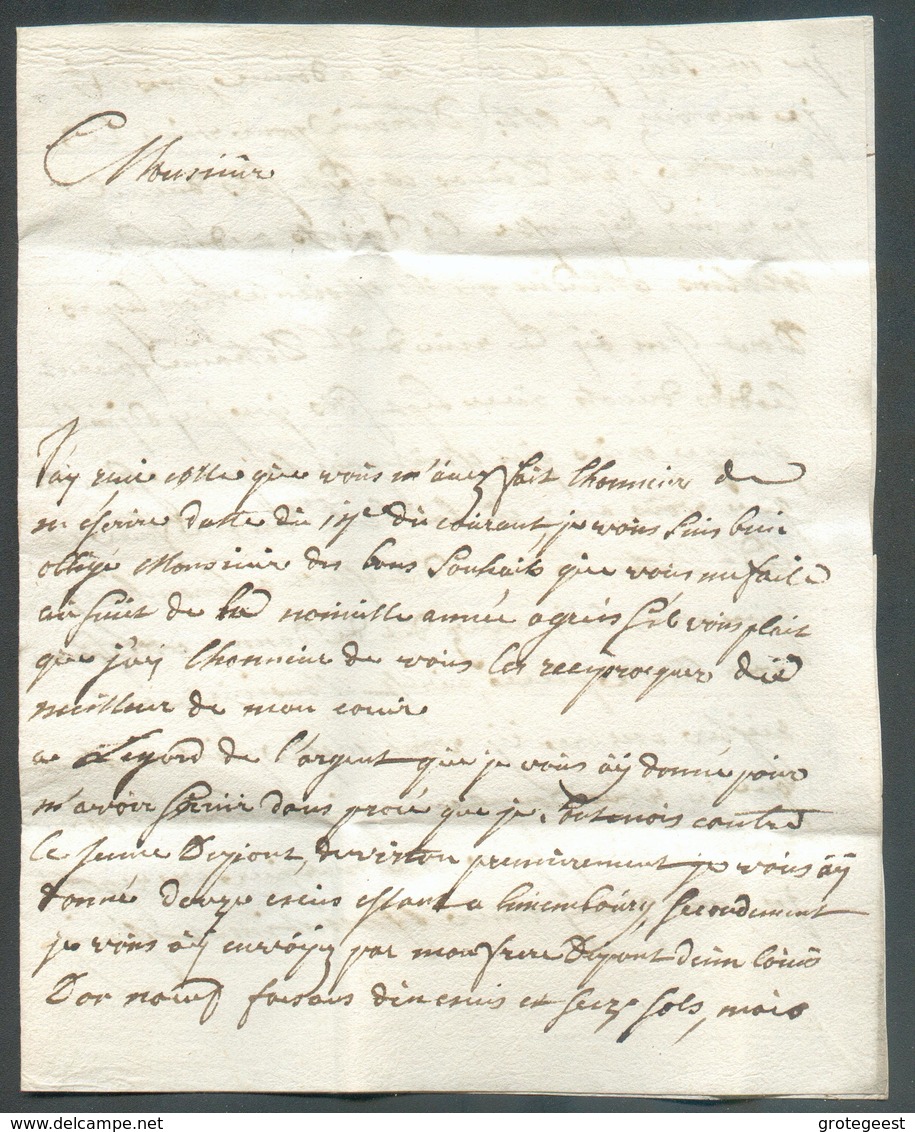 Monsieur
J'ay receu celle que vous m'avez fait lhonneur de
m escrire datté du du courant, je vous suis bien
obligé Monsieur des bons souhaits que vous me faite
au suiet de la nouvelle année agrées s'il vous plait
que j'aÿ lhonneur de vous les reciproquer du
meilleur de mon coeur
a Legard de l'argent que je vous aÿ donné pour
m'avoir servir dans procé que je contre
le Dupont, premierement je vous aÿ
donné escus estant a luxembourg, secondement
je vous aÿ envoÿez par mon frere Dupont d'un louis
D'or neuf faisans escus et seize sols, mais
delcampe.net
grotegeest